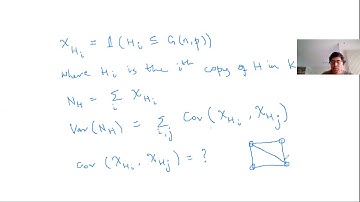 X_{H_i} = 𝟙(H_i ⊆ G(n,p))
where H_i is the i^{th} copy of H in K
N_H = Σ_i X_{H_i}
Var(N_H) = Σ_{i,j} Cov(X_{H_i}, X_{H_j})
Cov(X_{H_i}, X_{H_j}) = ?